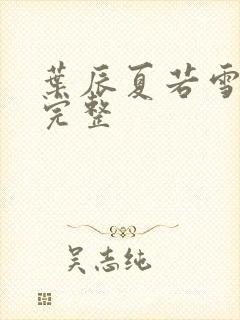 葉辰夏若雪
完整
吴志纯